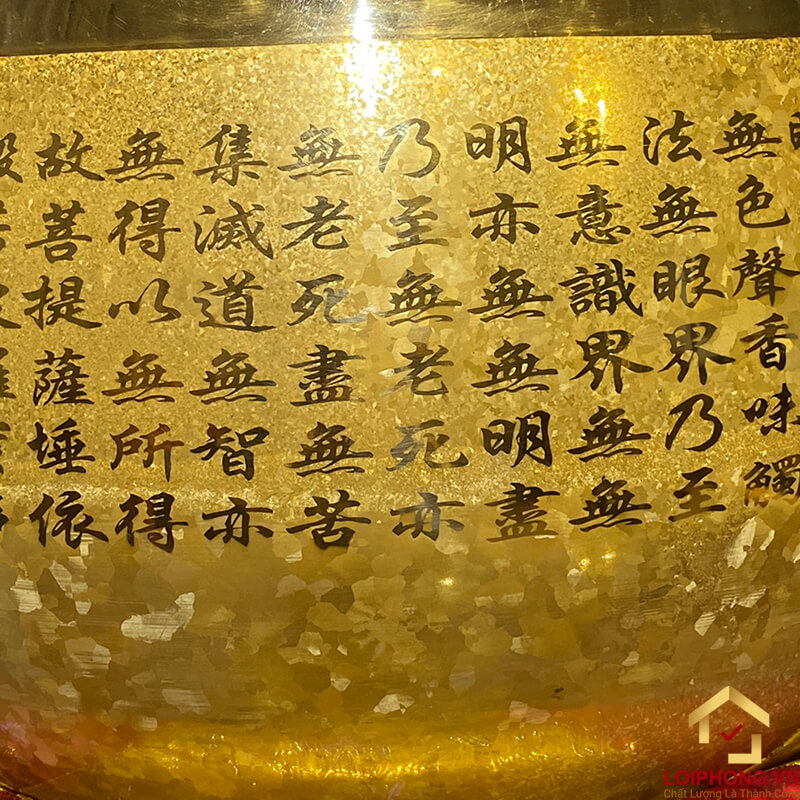 無色聲香味觸
法無眼界乃至
無意識界無無
明亦無無明盡
乃至無老死亦
無老死盡無苦
集滅道無智亦
無得以無所得
故菩提薩埵依
LOIPHONG.VN
Chất Lượng Là Thành